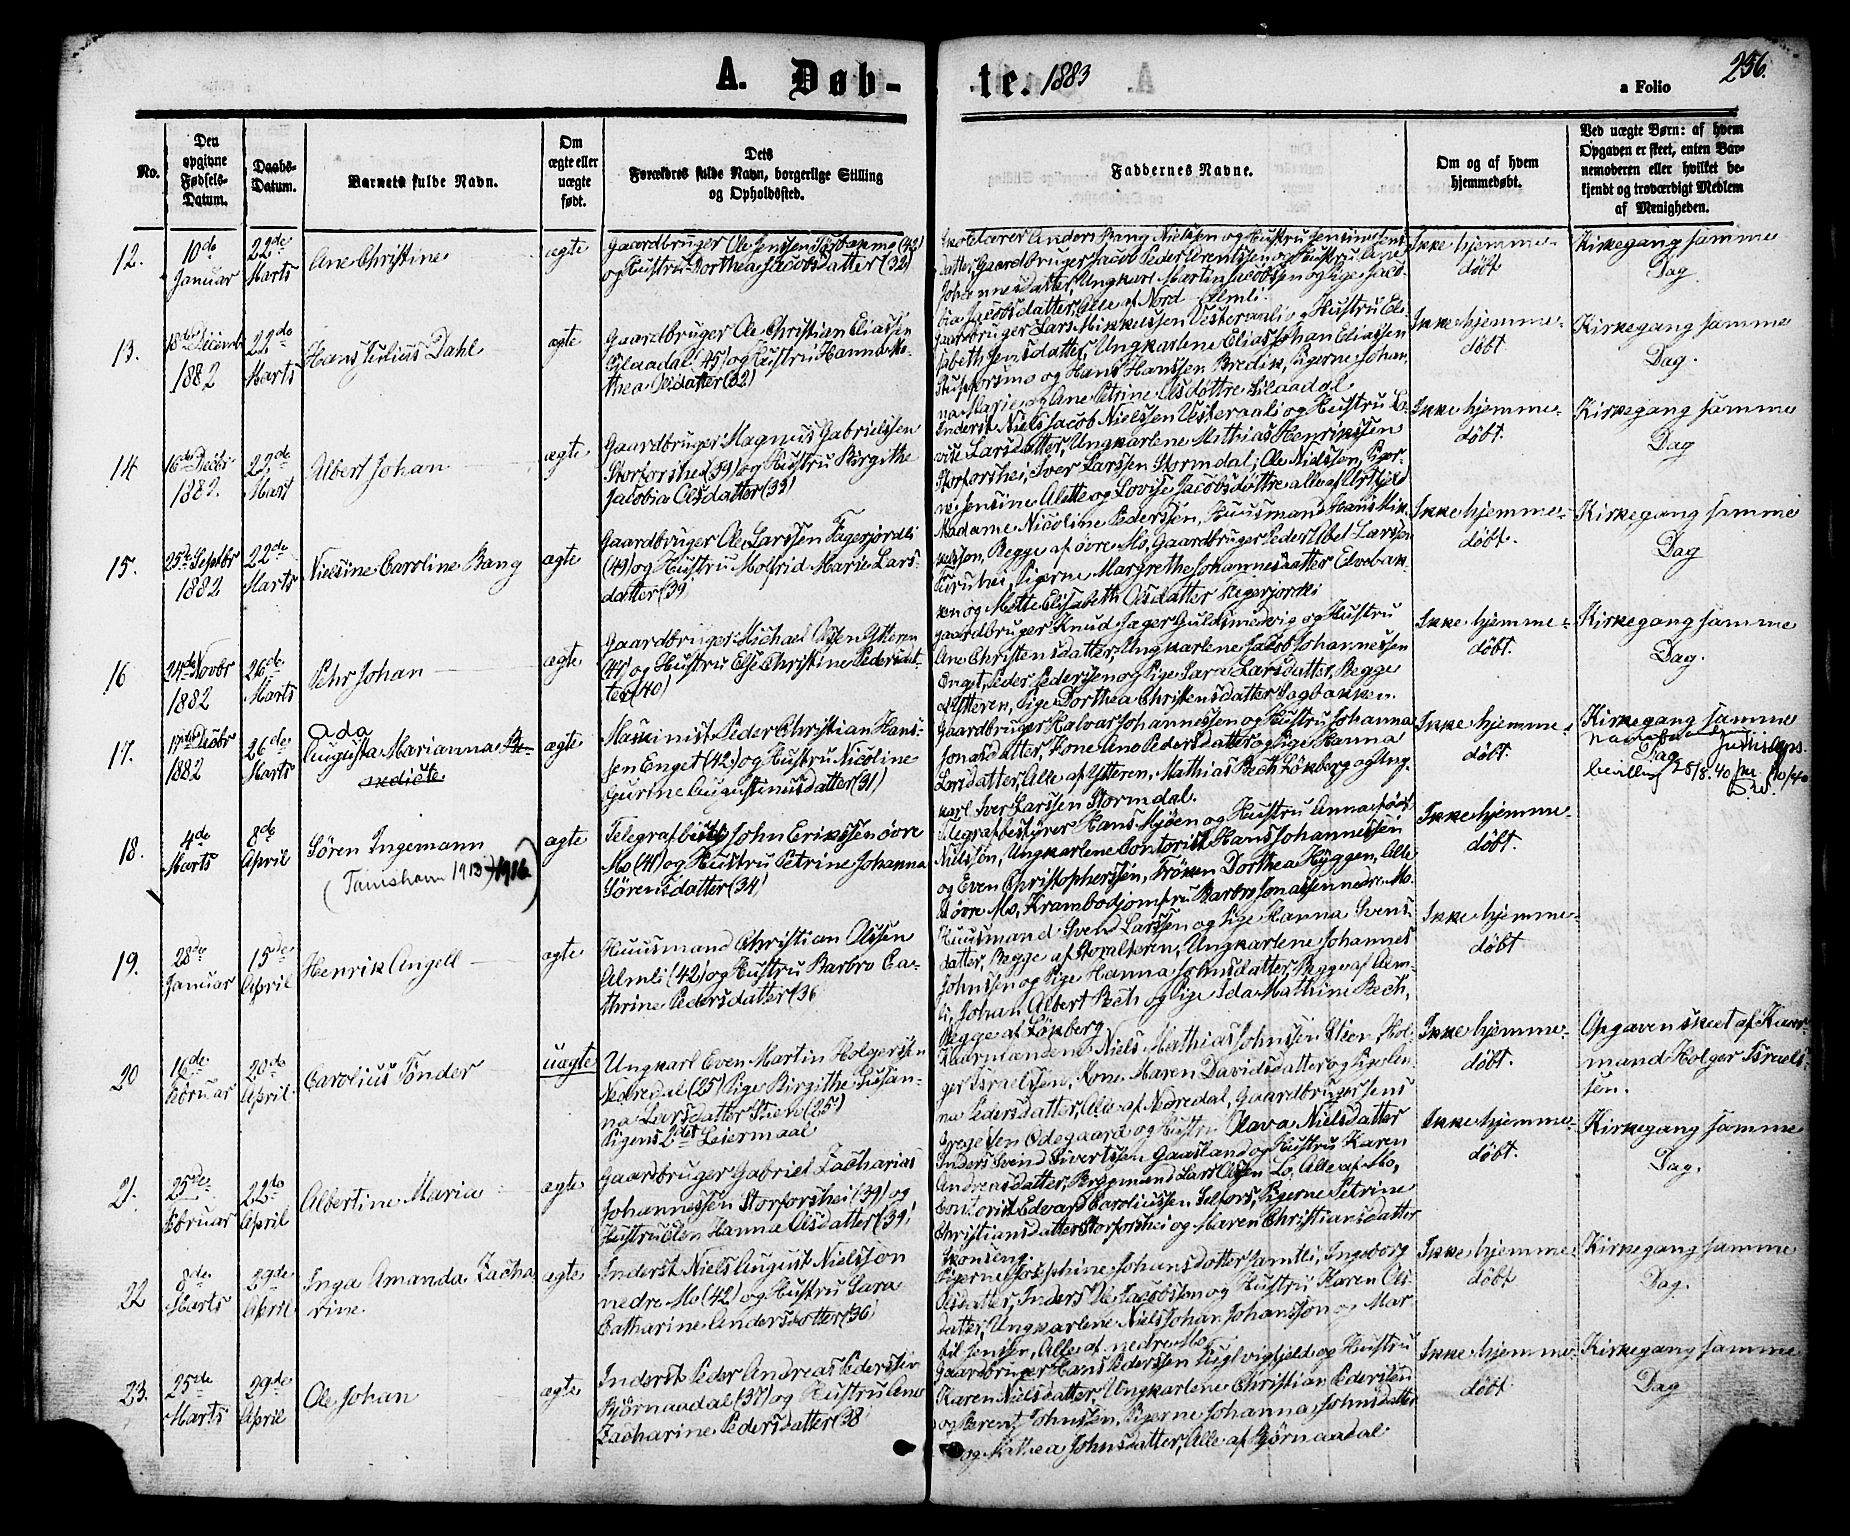 A. Døb-te. 1883
a Folio 256.
No.
Den opgivne Fødsels-Datum.
Daabs-Datum.
Barnets fulde Navn.
Om ægte eller uægte født.
Dets Forældres fulde Navn, borgerlige Stilling og Opholdssted.
Faddernes Navne.
Om og af hvem hjemmedøbt.
Ved uægte Børn: af hvem Opgaven er skeet, enten Barnemoderen eller hvilket bekjendt og troværdigt Medlem af Menigheden.
12.
10de Januar
22de Marts
Ane Christine
ægte
Gaardbruger Ole Jenssen (42)
og Hustru Dorthea Jacobsdatter (32)
Skolelærer Anders Bang Nielssen og Hustru
datter, Gaardbruger Jacob Peder Arentssen og Hustru Ane
Johannesdatter, Ungkarl Martin Jacobssen og Pige Jaco-
bia Jacobsdatter, Alle af Nord Almli.
Ikke hjemme-
døbt
Kirkegang samme
Dag
13.
18de Decemb
1882
22de Marts
Hans Julius Dahl
ægte
Gaardbruger Ole Christian Eliassen
(45) og Hustru Hanna Mo-
thea Olsdatter (32)
Gaardbruger Lars Mikkelssen Vesteraali og Hustru Eli-
sabeth Jensdatter, Ungkarlene Elias Johan Eliassen
og Hans Hanssen Bredik, Pigerne Johan-
na Marie og Ane Petrine Olsdøttre
Ikke hjemme-
døbt
Kirkegang samme
Dag.
14
16de Decbr
1882.
22de Mart
Albert Johan
ægte
Gaardbruger Magnus Gabrielssen
Storforshei (39) og Hustru Birgithe
Jacobia Olsdatter (33)
Inderst Niels Jacob Nielssen Vesteraali og Hustru Lo-
vise Larsdatter, Ungkarlene Mathias Henrikssen
Storforshei, Iver Larssen Stormdal, Ole Nielssen, Piger-
ne Jensine Alette og Lovise Jacobsdøttre alle af
Ikke hjemme-
døbt.
Kirkegang samme
Dag
15.
25de Septbr
1882
22de Marts
Nielsine Caroline Bang
ægte
Gaardbruger Ole Larssen Fagerjordli
(49) og Hustru Molfrid Marie Lars-
datter (39)
Madame Nicoline Pederssen, Huusmand Hans Mik-
kelssøn, Begge af øvre Mo, Gaardbruger Peder Abel Larssen
Pigerne Margrethe Johannesdatter
og Mette Elisabeth Olsdatter Fagerjordli
Ikke hjemme-
døbt.
Kirkegang samme
Dag
16
24de Novbr
1882
26de Marts
Pehr Johan
ægte
Gaardbruger Michael Olsen Ytteren
(44) og Hustru Else Christine Pedersdat-
ter (40)
Gaardbruger Knud Jæger Guldsmedvig og Hustru
Ane Christensdatter, Ungkarlene Jacob Johannessen
Enget, Peder Pederssen og Pige Sara Larsdatter, Begge
af Ytteren, Pige Dorthea Christensdatter Sagbakken.
Ikke hjemme-
døbt.
Kirkegang samme
Dag.
17.
17de Decbr
1882
26de Marts
Ada
Augusta Marianna Be-
nedicte
ægte
Maskinist Peder Christian Hans-
sen Enget (42) og Hustru Nicoline
Gurine Augustinusdatter (31)
Gaardbruger Halvar Johannessen og Hustru Johanna
Jonasdatter, Kone Ane Pedersdatter og Pige Hanna
Larsdatter, Alle af Ytteren, Mathias Bech Løkberg og Ung-
karl Iver Larssen Stormdal.
Ikke hjemme-
døbt.
Kirkegang samme
Dag
bevilling 25/8.40
18.
4de Marts
8de April
Sören Ingemann
(Tamsham 1913) 1916)
ægte
Telegrafbest. John Erikssen øvre
Mo (41) og Hustru Petrine Johanna
Sörensdatter (34)
Telegrafbestyrer Hans Mjøen og Hustru Anna
Nielsøn, Ungkarlene Contorist Hans Johannessen
og Even Christopherssen, Frøken Dorthea Hyggen, Alle
af øvre Mo, Krambodjomfru Barbro Jonassen nedre Mo.
Ikke hjemme-
døbt.
19.
28de Januar
15de April
Henrik Angell
ægte
Huusmand Christian Olssen
Almli (42) og Hustru Barbro Ca-
thrine Pedersdatter (36
Huusmand Svend Larssen og Pige Hanna Svens-
datter, Begge af Storalteren, Ungkarlene Johannes
Johnsen og Pige Hanna Johnsdatter, Begge af Alm-
li, Johan Albert Bech og Pige Ida Mathine Bech,
Begge af Løkberg
Ikke hjemme-
døbt
20
16de Februar
20de April
Carolius Tönder
uægte
Ungkarl Even Martin Holgerssen
Nedredal (25) Pige Birgithe Susan-
na Larsdatter Stien (25)
Pigens 2det Leiermaal
Kaarmændene Niels Mathias Johnssen Stien, Hol-
ger Israelssen, Kone Maren Davidsdatter og Pige An-
na Pedersdatter, Alle af Nedredal, Gaardbruger Jens
Gregersen Ødegaard og Hustru Olava Nielsdatter
Ikke hjemme-
døbt.
Opgaven skeet af Kaar-
mand Holger Israels-
sen.
21.
25de Februar
22de April
Albertine Maria
ægte
Gaardbruger Gabriel Zacharias
Johannessen Storforshei (39) og
Hustru Elen Hanna Olsdatter (39)
Inders Svend Sivertssen Gaasland og Hustru Karen
Andreasdatter, Bygmand Lars Olssen Lo, Alle af Mo,
Contorist Edevard Caroliussen Selfors, Pigerne Petrine
Christiansdatter Storforshei og Maren Christiansdatter
Skonseng.
Ikke hjemme-
døbt.
Kirkegang samme
Dag.
22
8de Marts
29de April
Inga Amanda Zacha-
rine
ægte
Inderst Niels August Nielssøn
nedre Mo (42) og Hustru Sara
Catharine Andersdatter (36)
Pigerne Josephine Johansdatter Jamtli, Ingeborg
Olsdatter, Inders Ole Jacobssøn og Hustru Karen Ols-
datter, Ungkarlene Niels Johan Johanssøn og Mar-
til Jenssen, Alle af nedre Mo
Ikke hjemme-
døbt
Kirkegang samme
Dag.
23.
25de Marts
29de April
Ole Johan
ægte
Inderst Peder Andreas Pederssen
Bjørnaadal (37) og Hustru Ane
Zacharine Pedersdatter (38
Gaardbruger Hans Pederssen Fuglvigfjeld og Hustru
Karen Nielsdatter, Ungkarlene Christian Pederssen
og Berent Johnssen, Pigerne Johanna Johnsdatter
og Mathea Johnsdatter, Alle af Bjørnaadal
Ikke hjemme-
døbt
Kirkegang samme
Dag